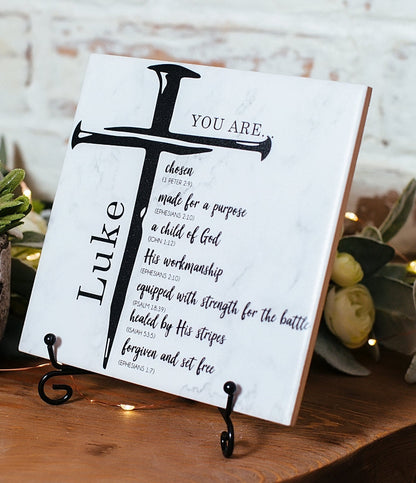 YOU ARE...
Luke
chosen
(1 PETER 2:9)
made for a purpose
(EPHESIANS 2:10)
a child of God
(JOHN 1:12)
His workmanship
(EPHESIANS 2:10)
equipped with strength for the battle
(PSALM 18:39)
healed by His stripes
(ISAIAH 53:5)
forgiven and set free
(EPHESIANS 1:7)